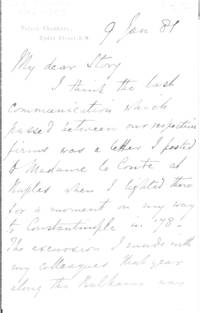 Palace Chambers,
Ryder Street, S.W.
9 Jan 81
My dear Story
I think the last
communication which
passed between our respective
firms was a letter I posted
to Madame Le Conte at
Naples when I lighted there
for a moment on my way
to Constantinople in '78 -
The excursion I made with
my colleagues that year
along the Balkans was